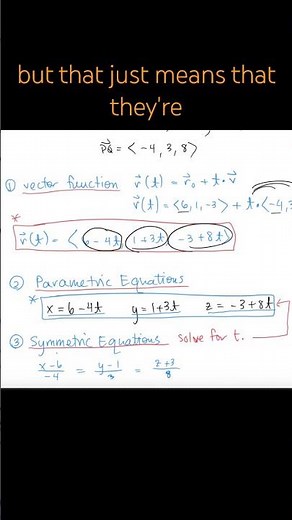 but that just means that
they're
PQ = < -4, 3, 8 >
① vector function r(t) = r₀ + t · v
r(t) = < 6, 1, -3 > + t · < -4, 3
* r(t) = < 6 - 4t, 1 + 3t, -3 + 8t >
② Parametric Equations
* x = 6 - 4t y = 1 + 3t z = -3 + 8t
③ Symmetric Equations solve for t.
x-6/-4 = y-1/3 = z+3/8